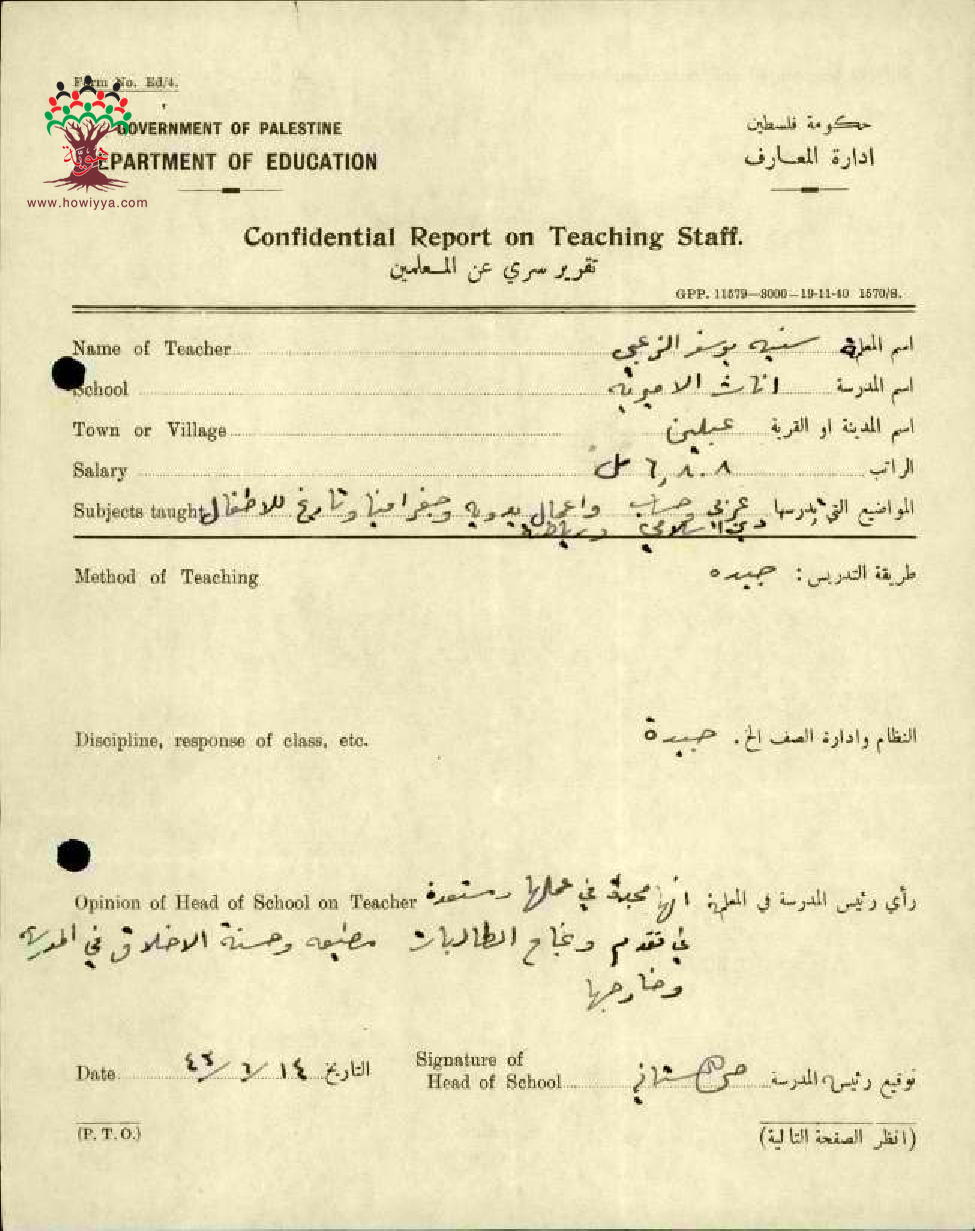 Form No. Ed/4.
GOVERNMENT OF PALESTINE
حكومة فلسطين
DEPARTMENT OF EDUCATION
ادارة المعارف
هوية
www.howiyya.com
Confidential Report on Teaching Staff.
تقرير سري عن المعلمين
GPP. 11579—3000—19-11-40 1570/S.
Name of Teacher
اسم المعلمة سنيه يوسف الزعبي
School
اسم المدرسة اناث الاميرية
Town or Village
اسم المدينة او القربة عبلين
Salary
الراتب ٦,٨٠٨ مل
Subjects taught
المواضيع التي تدرسها عربي وحساب واعمال يدويه وجغرافيا وتاريخ للاطفال
دين اسلامي ورياضة
Method of Teaching
طريقة التدريس: جيده
Discipline, response of class, etc.
النظام وادارة الصف الخ. جيدة
Opinion of Head of School on Teacher
رأي رئيس المدرسة في المعلمة: انها مجدة في عملها ومستعدة
في تقدم ونجاح الطالبات مطيعه وحسنة الاخلاق في المدرسة
وخارجها
Date
التاريخ ١٤/٦/٤٣
Signature of
Head of School
توقيع رئيسه المدرسة
(P. T. O.)
(انظر الصفحة التالية)